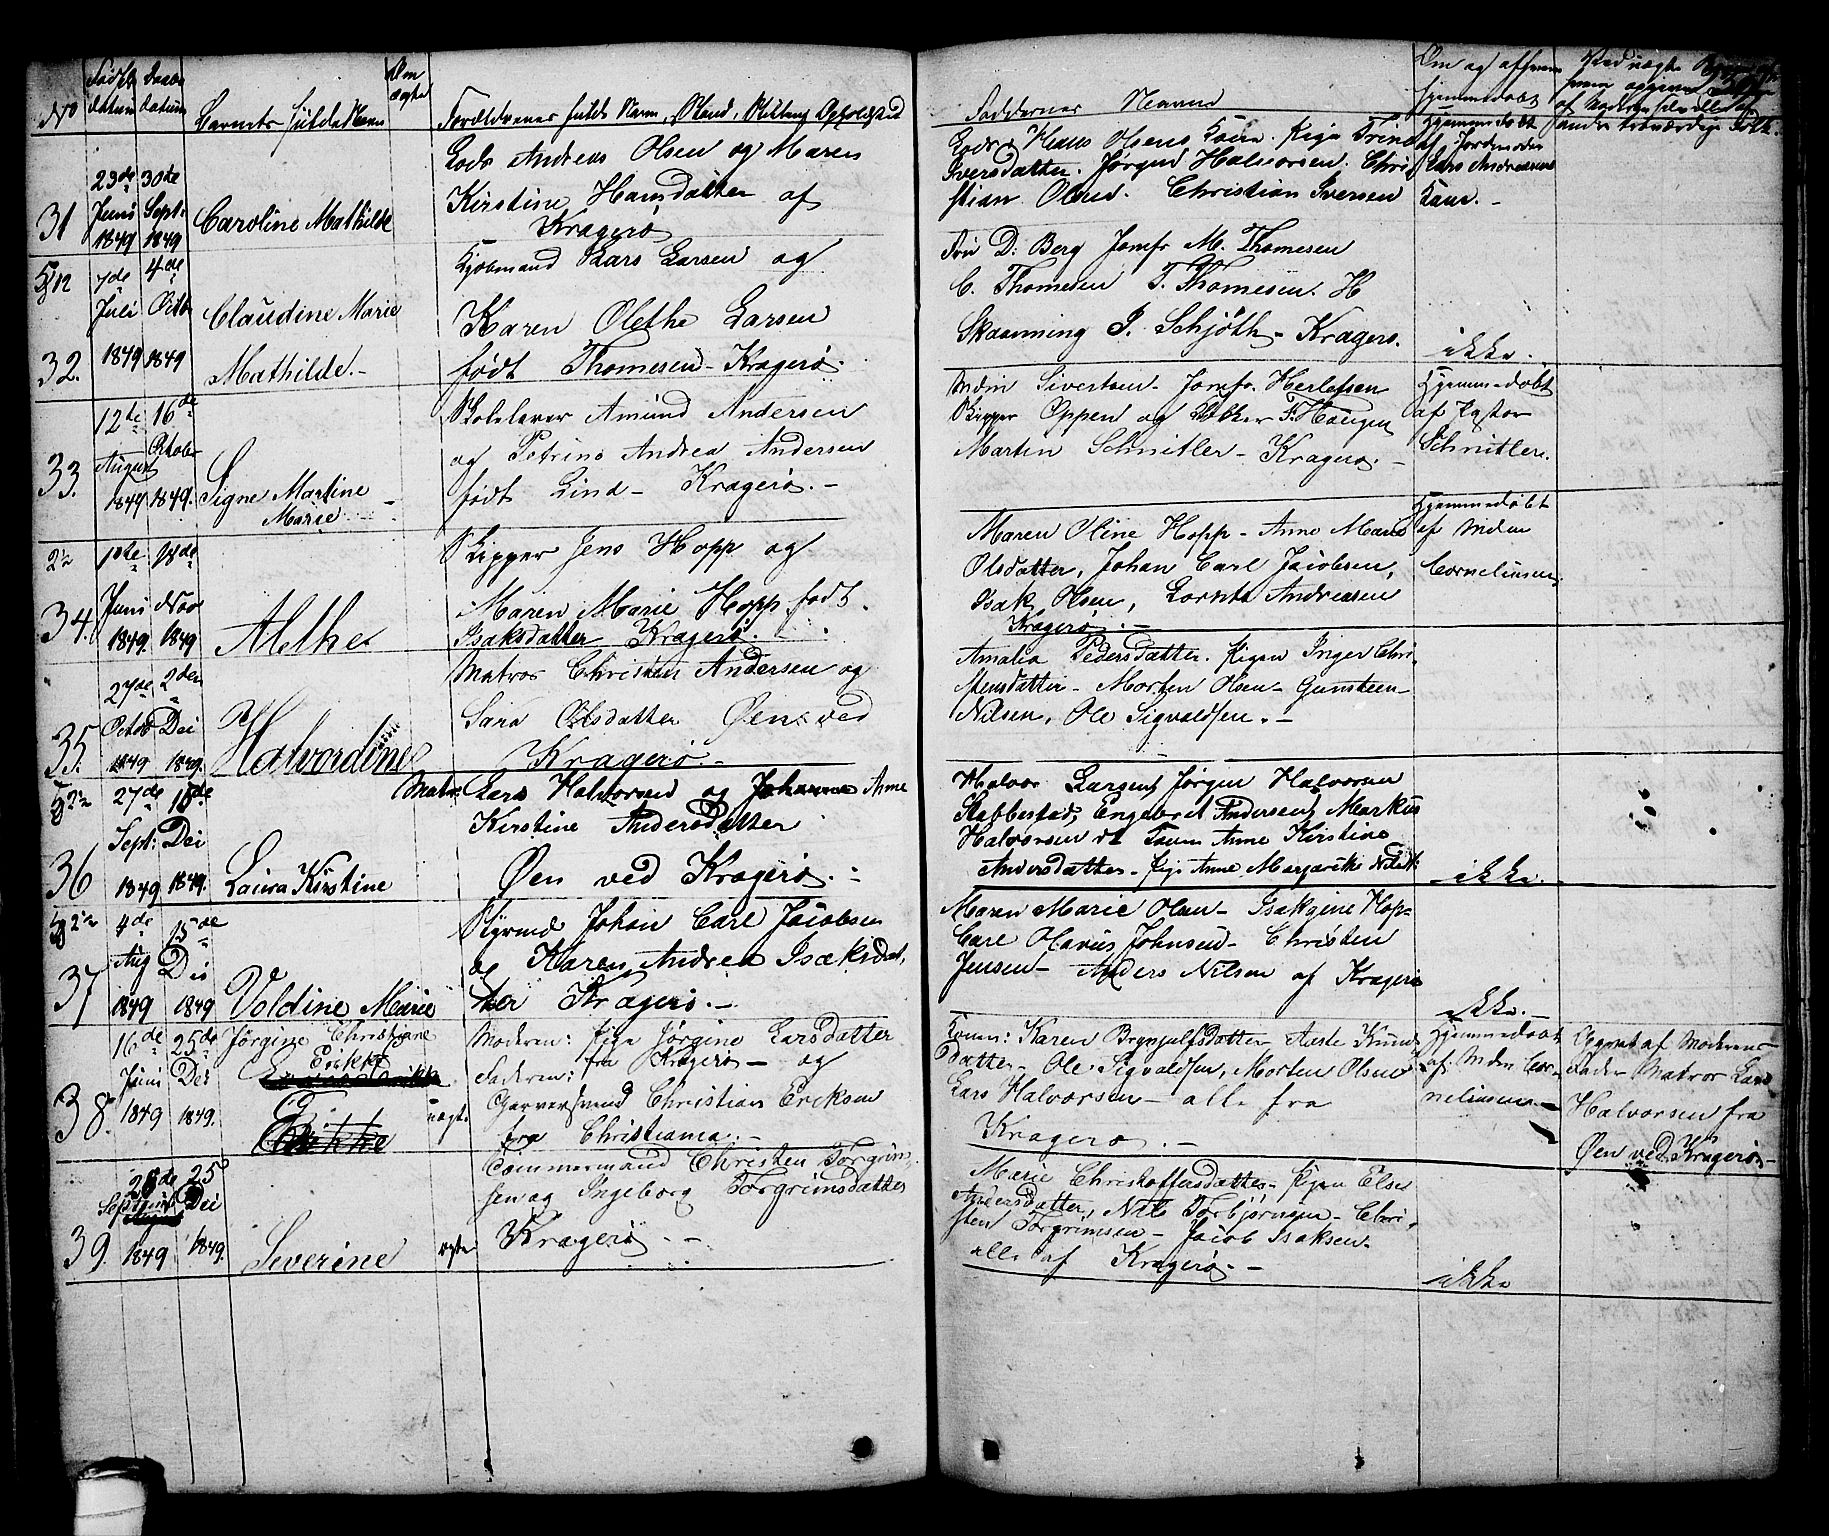 No
Fødsels datum
Daabs datum
Barnets fulde Navn
Om ægte
Forældrenes fulde Navn, Stand, Opholdsted
Faddernes Navne
Om og af hvem
hjemmedøbt
af Moderen selv eller af
andre troværdige Folk.
31
23de Juni 1849
30te Sept: 1849
Caroline Mathilde
Lods Andreas Olsen og Maren
Kirstine Hansdatter af
Kragerø
Lods Hans Olsens Kone. Pige Trine
Iversdatter. Jørgen Halvorsen. Chri-
stian Olsen. Christian Iversen
Hjemmedøbt
af Jordemoder
Lars Andreasens
Kone. -
32.
7de Juli 1849
4de Octb 1849
Claudine Marie
Mathilde. -
Kjøbmand Lars Larsen og
Karen Olethe Larsen
født Thomesen - Kragerø.
Fru D: Berg Jomfr M. Thomesen
C. Thomesen T. Thomesen. H
Skaanning J. Schjøth - Kragerø.
ikke.
33.
12te August 1849
16de Octobr 1849.
Signe Martine
Marie
Skolelærer Amund Andersen
og Petrine Andrea Andersen
født Lind - Kragerø. -
Mdm Sivertsen - Jomfr. Herlofsen
Skipper Oppen og F. Hougen
Martin Schnitler - Kragerø. -
Hjemmedøbt
af Pastor
Schnitler.
34.
Juni 1849.
18de Nov 1849
Alethe
Skipper Jens Hopp og
Maren Marie Hopp født
Isaksdatter Kragerø.
Maren Oline Hopp - Anne Marie
Olsdatter, Johan Carl Jacobsen,
Isak Olsen, Andreasen
Kragerø. -
Hjemmedøbt
af Mdm
Corneliusen.
35.
27de Octob 1849
2den Dei 1849.
Halvordine
Matros Christen Andersen og
Sara Olsdatter Øen ved
Kragerø. -
Amalia Pedersdatter. Pigen Inger Chri-
stensdatter - Morten Olsen - Gunsteen
Nilsen, Ole Sigvaldsen. -
36
27de Sept: 1849
Dei 1849.
Laura Kirstine
Matr. Lars Halvorsen og Johanne Anne
Kirstine Andersdatter
Øen ved Kragerø. -
Halvor Larsen, Jørgen Halvorsen
Stabbestad, Engebret Andersen, Markus
Halvorsen Anne Kirstine
Andersdatter - Pige Anne Margarethe
ikke.
37
4de Aug 1849
15de Dei 1849
Voldine Marie
Styrmd Johan Carl Jacobsen
og Karen Andrea Isaksdat-
ter Kragerø. -
Maren Marie Olsen - Isakgine Hop-
Carl Olavus Johnsen - Christen
Jensen - Anders Nilsen af Kragerø
ikke. -
38.
16de Juni 1849
25de Dei 1849.
Jørgine Christiane
Erikka
uægte
Moderen: Pige Jørgine Larsdatter
fra Kragerø - og
Faderen:
Garversvend Christian Eriksen
fra Christiania. -
Konen: Karen Brynjulfsdatter Aaste Knuds
datter - Ole Sigvaldsen, Morten Olsen
Lars Halvorsen - alle fra
Kragerø. -
Hjemmedøbt
af Mdm Cor-
neliusen. -
Opgivet af Moderens
Fader Matros Lars
Halvorsen fra
Øen ved Kragerø. -
39.
28de Septembr 1849
25 Dei 1849.
Severine
ægte
Tømmermand Christen Torgrim-
sen og Ingeborg Torgrimsdatter
Kragerø. -
Marie Christoffersdatter - Pigen Else
Andersdatter, Nils Torbjørnsen - Chri-
sten Torgrimsen - Jacob Isaksen -
alle af Kragerø. -
ikke